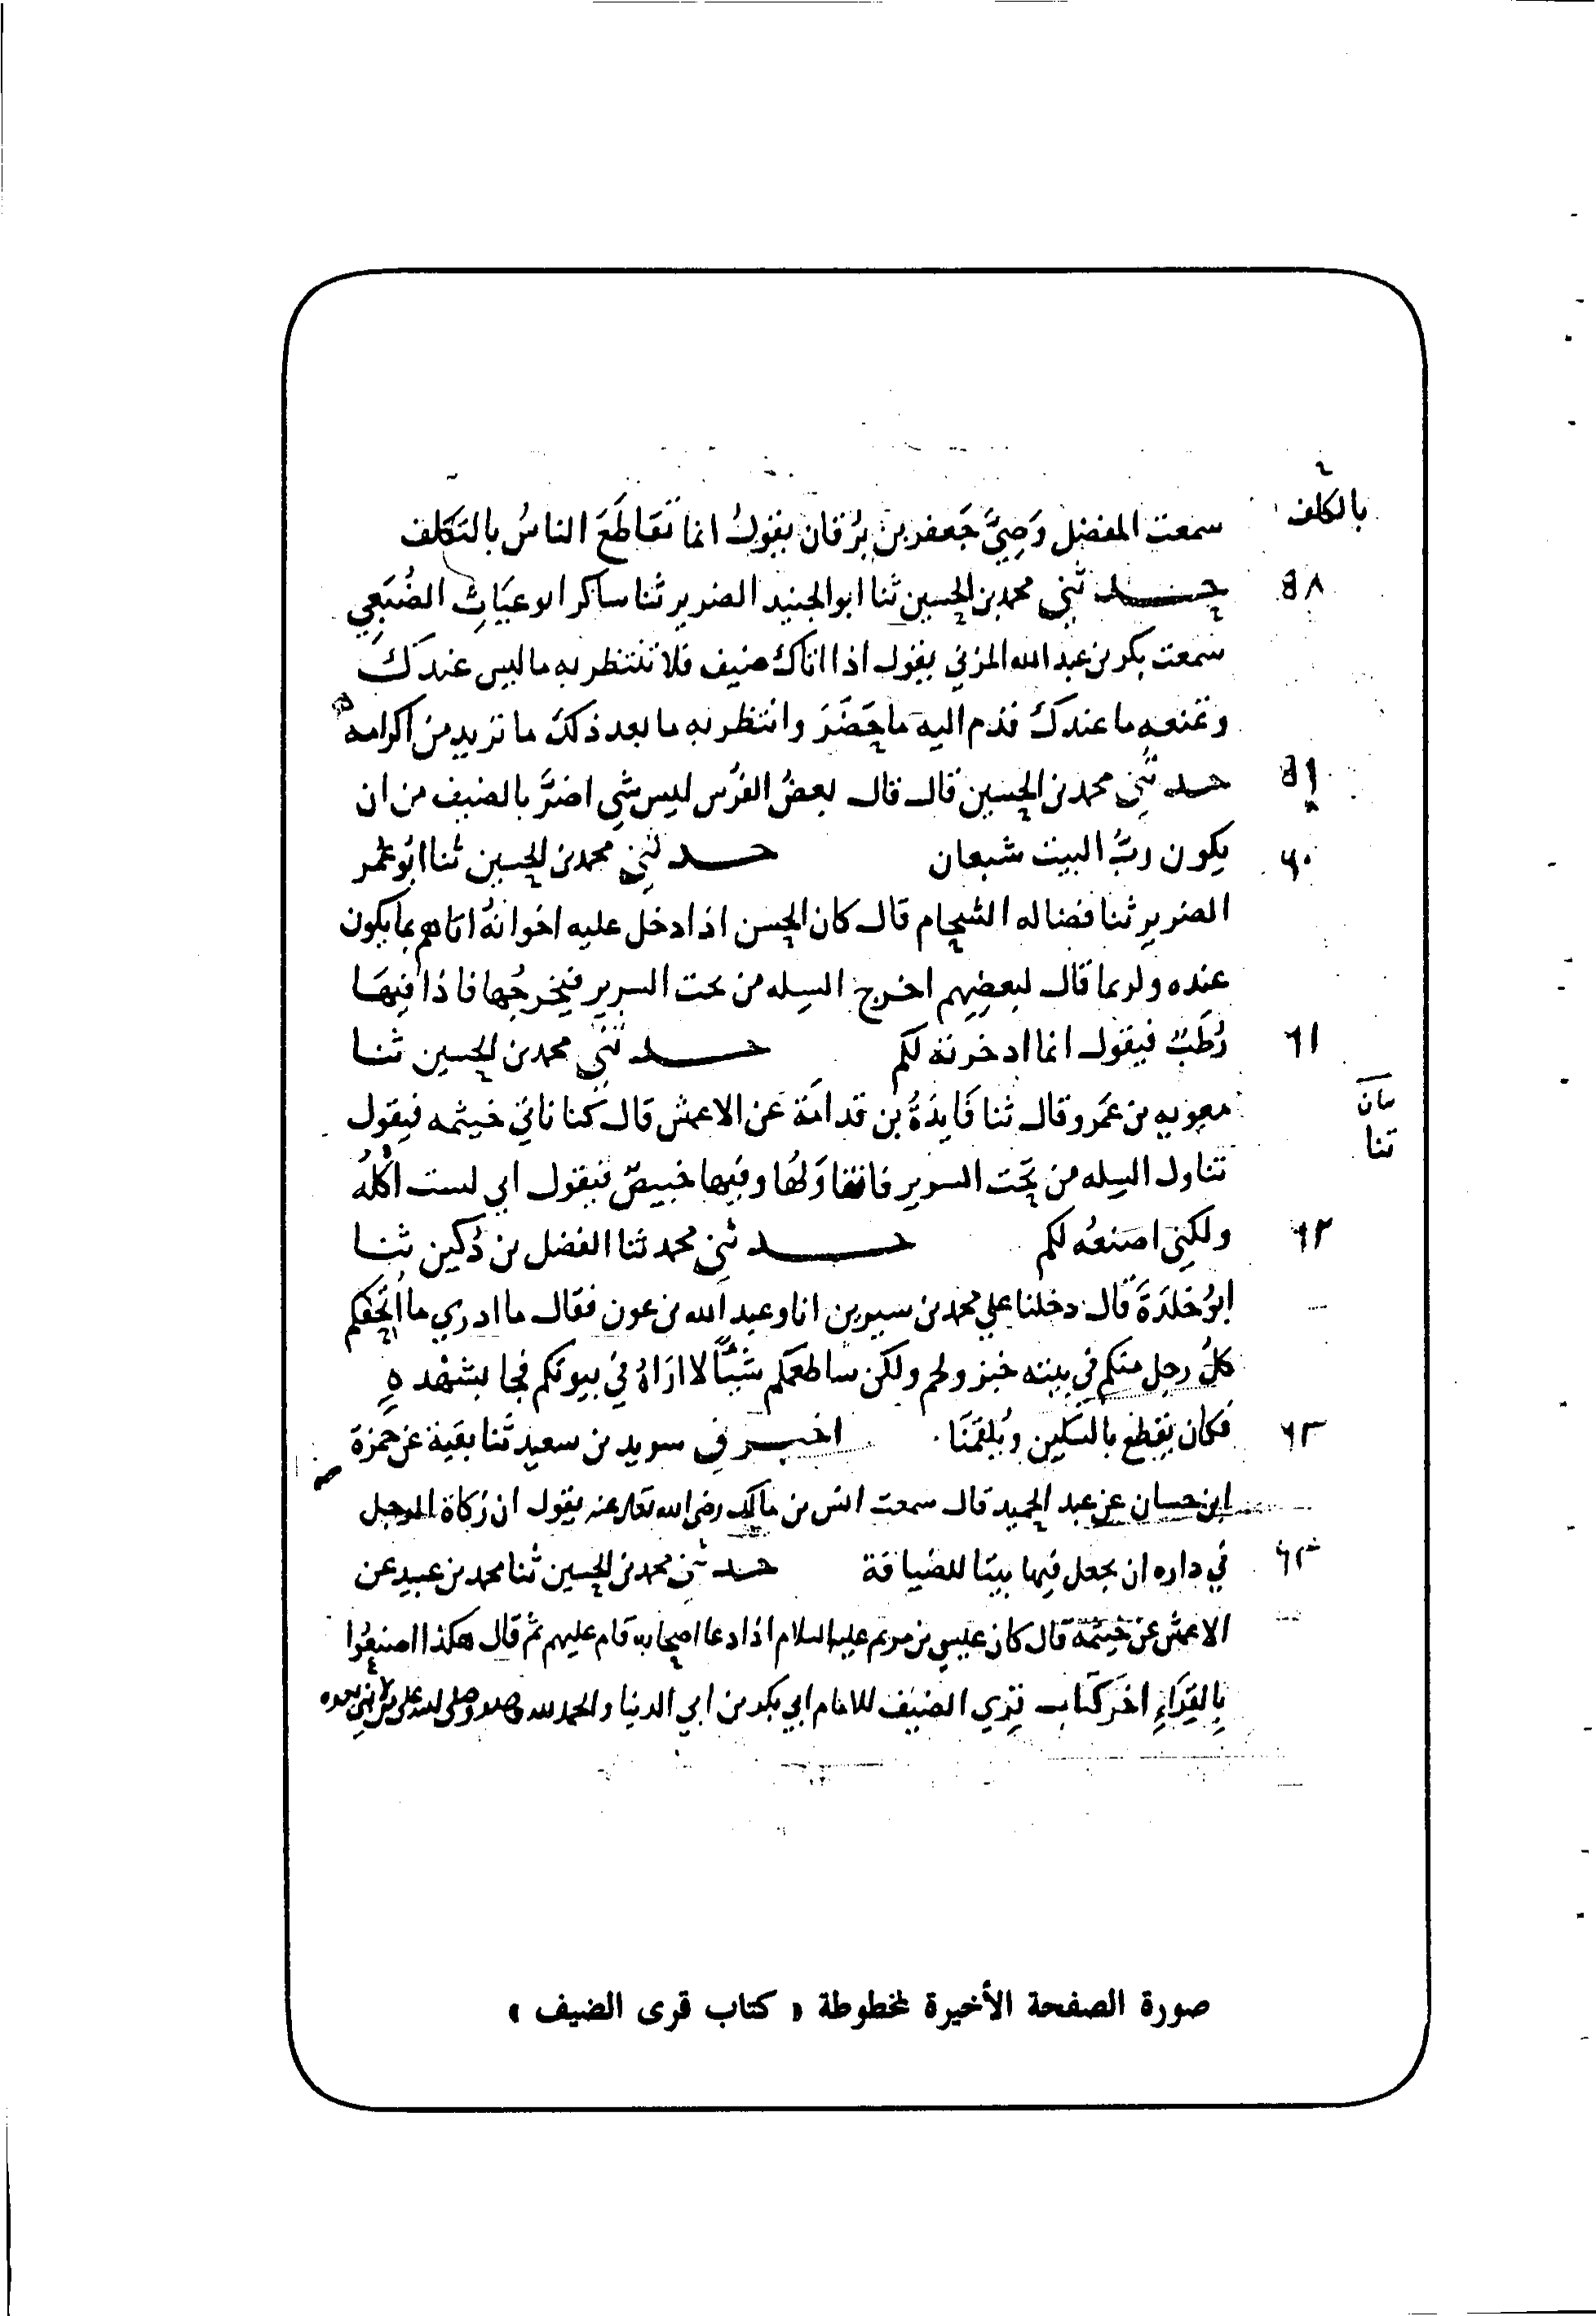 بالكلف
سمعت المفضل وَصِيَّ جَعفر بن بُرقان يقولُ انما تقَاطَعَ الناسُ بالتكلف
٥٨ حــدثني محمد بن الحسين ثنا ابو الجنيد الضرير ثنا ساكر ابو عيَاثٍ الضُبَعِي
سمعت بكر بن عبد الله المزني يقول اذا اتاك ضيف فلا تنتظر به ما ليس عندك
وتمنعه ما عندكَ قدم اليه ما حَضَرَ وانتظر به ما بعد ذلك ما تريد من اكرامه
٥٩ حــدثني محمد بن الحسين قال قال بعضُ الفرْس ليس شي اضرَّ بالضيف من ان
٦٠ يكون ربُّ البيت شبعان حــدثني محمد بن الحسين ثنا ابُو عُمر
الضرير ثنا فضاله الشحام قال كان الحسن اذا دخل عليه اخوانهُ اتاهم بما يكون
عنده ولربما قال لبعضِهم اخرج السله من تحت السرير فيُخرجُها فاذا فيهَا
٦١ رُطَبٌ فيقول انما ادخرته لكم حــدثني محمد بن الحسين ثنا
معويه بن عَمرو قال ثنا زَايدَةُ بن قدامَة عَن الاعمش قال كنا ناتي خيثمه فيقول
ثنا
تناول السله من تَحت السرير فاتناوَلُها وفيها خبيصٌ فيقول اني لست اكلهُ
٦٢ ولكني اصنعُه لكم حــدثني محمد ثنا الفضل بن دُكين ثنا
ابوُ خَلدَةَ قال دخلنا علي محمد بن سيرين انا وعبد الله بن عون فقال ما ادري ما اُتحِفكم
كلُّ رجل منكم في بيته خبز ولحم ولكن ساطعمكم شَيئًا لا ارَاهُ في بيوتكم فجا بشهْدهٍ
٦٣ فكان يَقطع بالسكين ويُلقمنَا اخبــرني سويد بن سعيد ثنا بقية عن حمزة
ابن حسان عن عبد الحميد قال سمعت انس بن مالك رضى الله تعالى عنه يقول ان زكاة الرجل
٦٤ في داره ان يجعل فيها بيتا للضيافة حــدثني محمد بن الحسين ثنا محمد بن عبيد عن
الاعمش عن خيثمة قال كان عيسي بن مريم عليه السلام اذا دعا اصحابه قام عليهم ثم قال هكذا اصنعُوا
بالقرَاءِ اخر كتاب قِري الضيف للامام ابي بكر بن ابي الدنيا والحمد لله وحده وصلى الله على من لا نبي بعده
صورة الصفحة الأخيرة لمخطوطة « كتاب قرى الضيف »